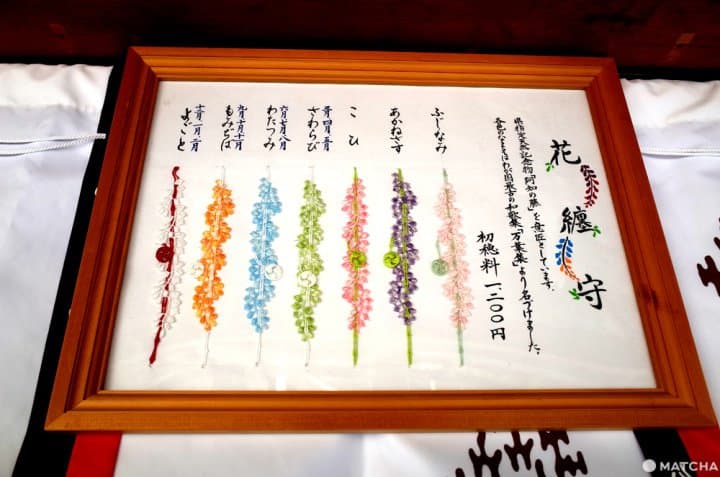 花纏守
県指定天然記念物「阿知の藤」を意匠としています。
各色のなまえはわが国最古の和歌集「万葉集」より名づけました。
初穂料 一、二〇〇円
ふじなみ
あかねさす
こひ
三月四月五月
さわらび
六月七月八月
わたつみ
九月十月十一月
もみぢば
十二月一月二月
よごと
MATCHA